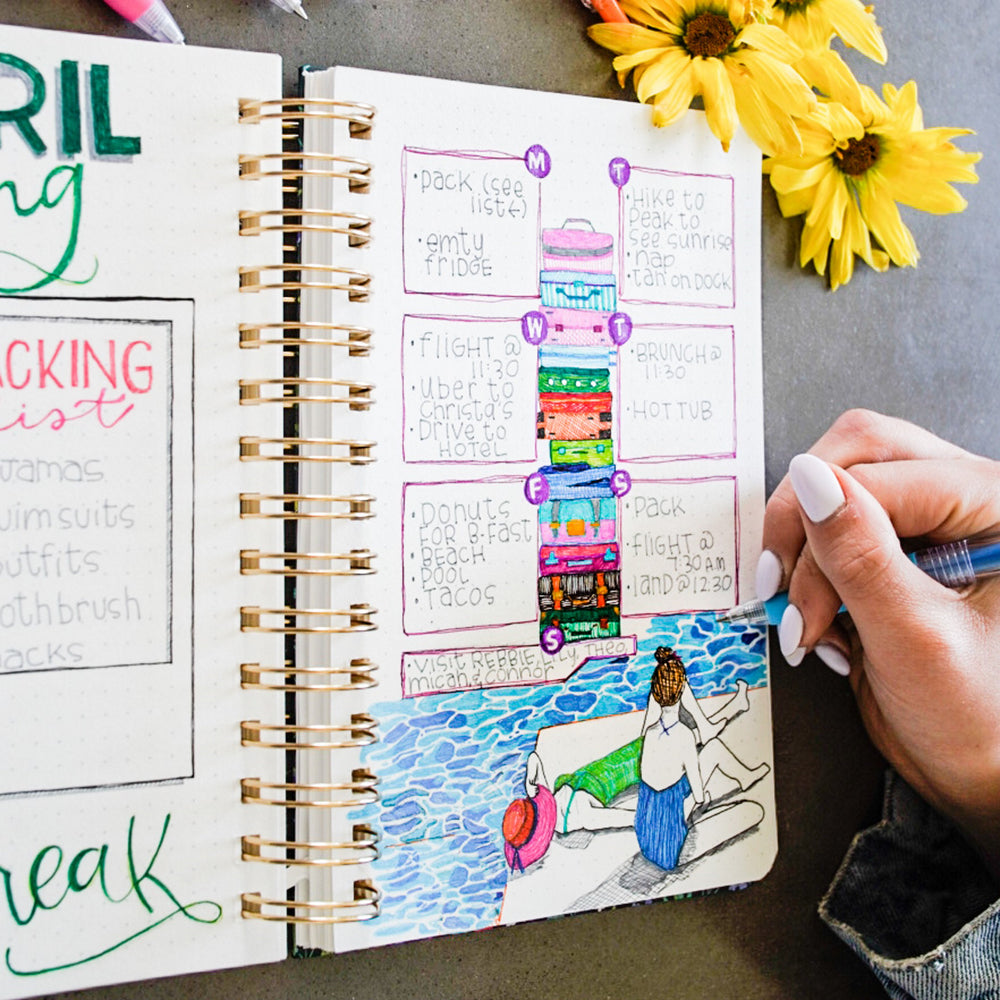 RIL
ng
ACKING
ist
jamas
wimsuits
utfits
othbrush
nacks
reak
M
• pack (see
list←)
• emty
fridge
T
• Hike to
peak to
see sunrise
• nap
• tan on dock
W
• flight @
11:30
• Uber to
Christa's
• Drive to
Hotel
T
• Brunch @
11:30
• Hot tub
F
• Donuts
for B-fast
• Beach
• Pool
• Tacos
S
• Pack
• flight @
7:30 am
• land @ 12:30
S
• Visit Rebbie, Lily, Theo,
micah, & connor